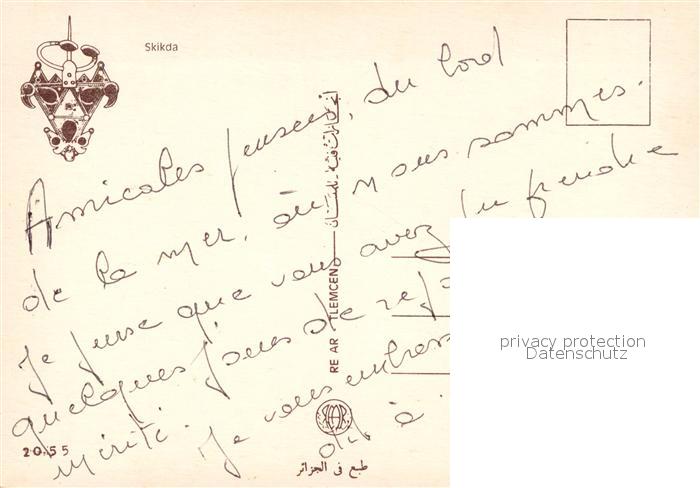 Skikda
Amicales pensées, du bord
de la mer, où nous sommes.
Je pense que vous avez pu prendre
quelques jours de repos
mérité. Je vous embrasse
20.55
RE AR TLEMCEN
طبع في الجزائر
privacy protection
Datenschutz